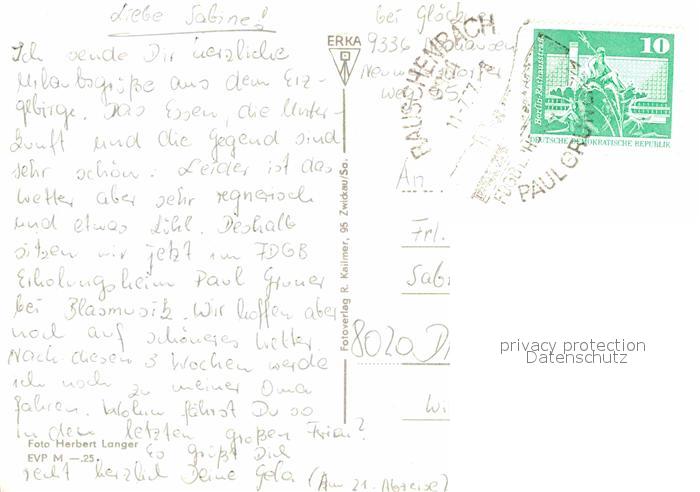 Liebe Sabine!
Ich sende Dir herzliche
Urlaubsgrüße aus dem Erz-
gebirge. Das Essen, die Unter-
kunft und die Gegend sind
sehr schön. Leider ist das
Wetter aber sehr regnerisch
und etwas kühl. Deshalb
sitzen wir jetzt im FDGB
Erholungsheim Paul Gruner
bei Blasmusik. Wir hoffen aber
noch auf schöneres Wetter.
Nach diesen 3 Wochen werde
ich noch zu meiner Oma
fahren. Wohin fährst Du so
in den letzten großen Ferien?
Es grüßt Dich
recht herzlich Deine
(Am 21. Abreise)
Foto Herbert Langer
EVP M —.25
ERKA
Fotoverlag R. Kallmer, 95 Zwickau/Sa.
bei
9336
RAUSCHENBACH
PAUL GRUNER
10
Berlin-Rathausstraße
DEUTSCHE DEMOKRATISCHE REPUBLIK
An
Frl.
Sabi
8020 D
privacy protection
Datenschutz